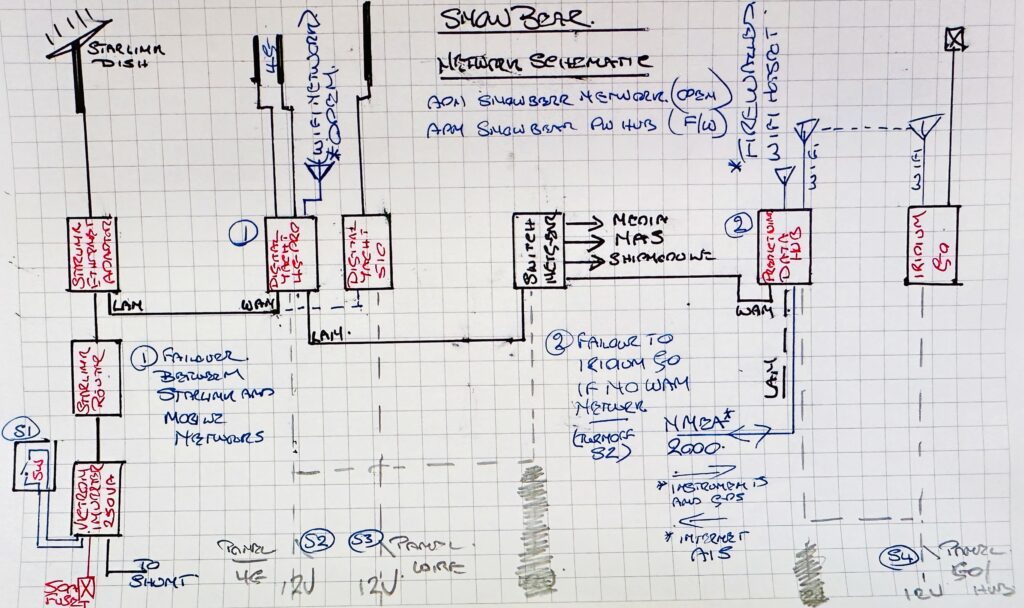 SNOWBEAR.
NETWORK SCHEMATIC
APN SNOWBEAR NETWORK. (OPEN)
APN SNOWBEAR PW HUB (F/W)
STARLINK
DISH
4G
(WIFI NETWORK)
*OPEN.
* (FIREWALLED)
WIFI HOTSPOT
WIFI
WIFI
STARLINK
ETHERNET
ADAPTOR
1
DIGITAL
YACHT
4G PRO
DIGITAL
YACHT
510
SWITCH
NETGEAR
MEDIA
NAS
SHIPMODULE
2
PREDICTWIND
DATA
HUB
IRIDIUM
GO
LAN
WAN
LAN
WAN
LAN
STARLINK
ROUTER
1 FAILOVER
BETWEEN
STARLINK AND
MOBILE
NETWORKS
2 FAILOVER TO
IRIDIUM GO
IF NO WAN
NETWORK
(TURN OFF
S2)
NMEA*
2000.
* INSTRUMENTS
AND GPS
* INTERNET
AIS
S1
SW
VICTRON
INVERTER
250VA
TO
SHUNT
PANEL
4G
S2
12V
S3
12V
PANEL
WIRE
S4
12V
PANEL
GO/
HUB